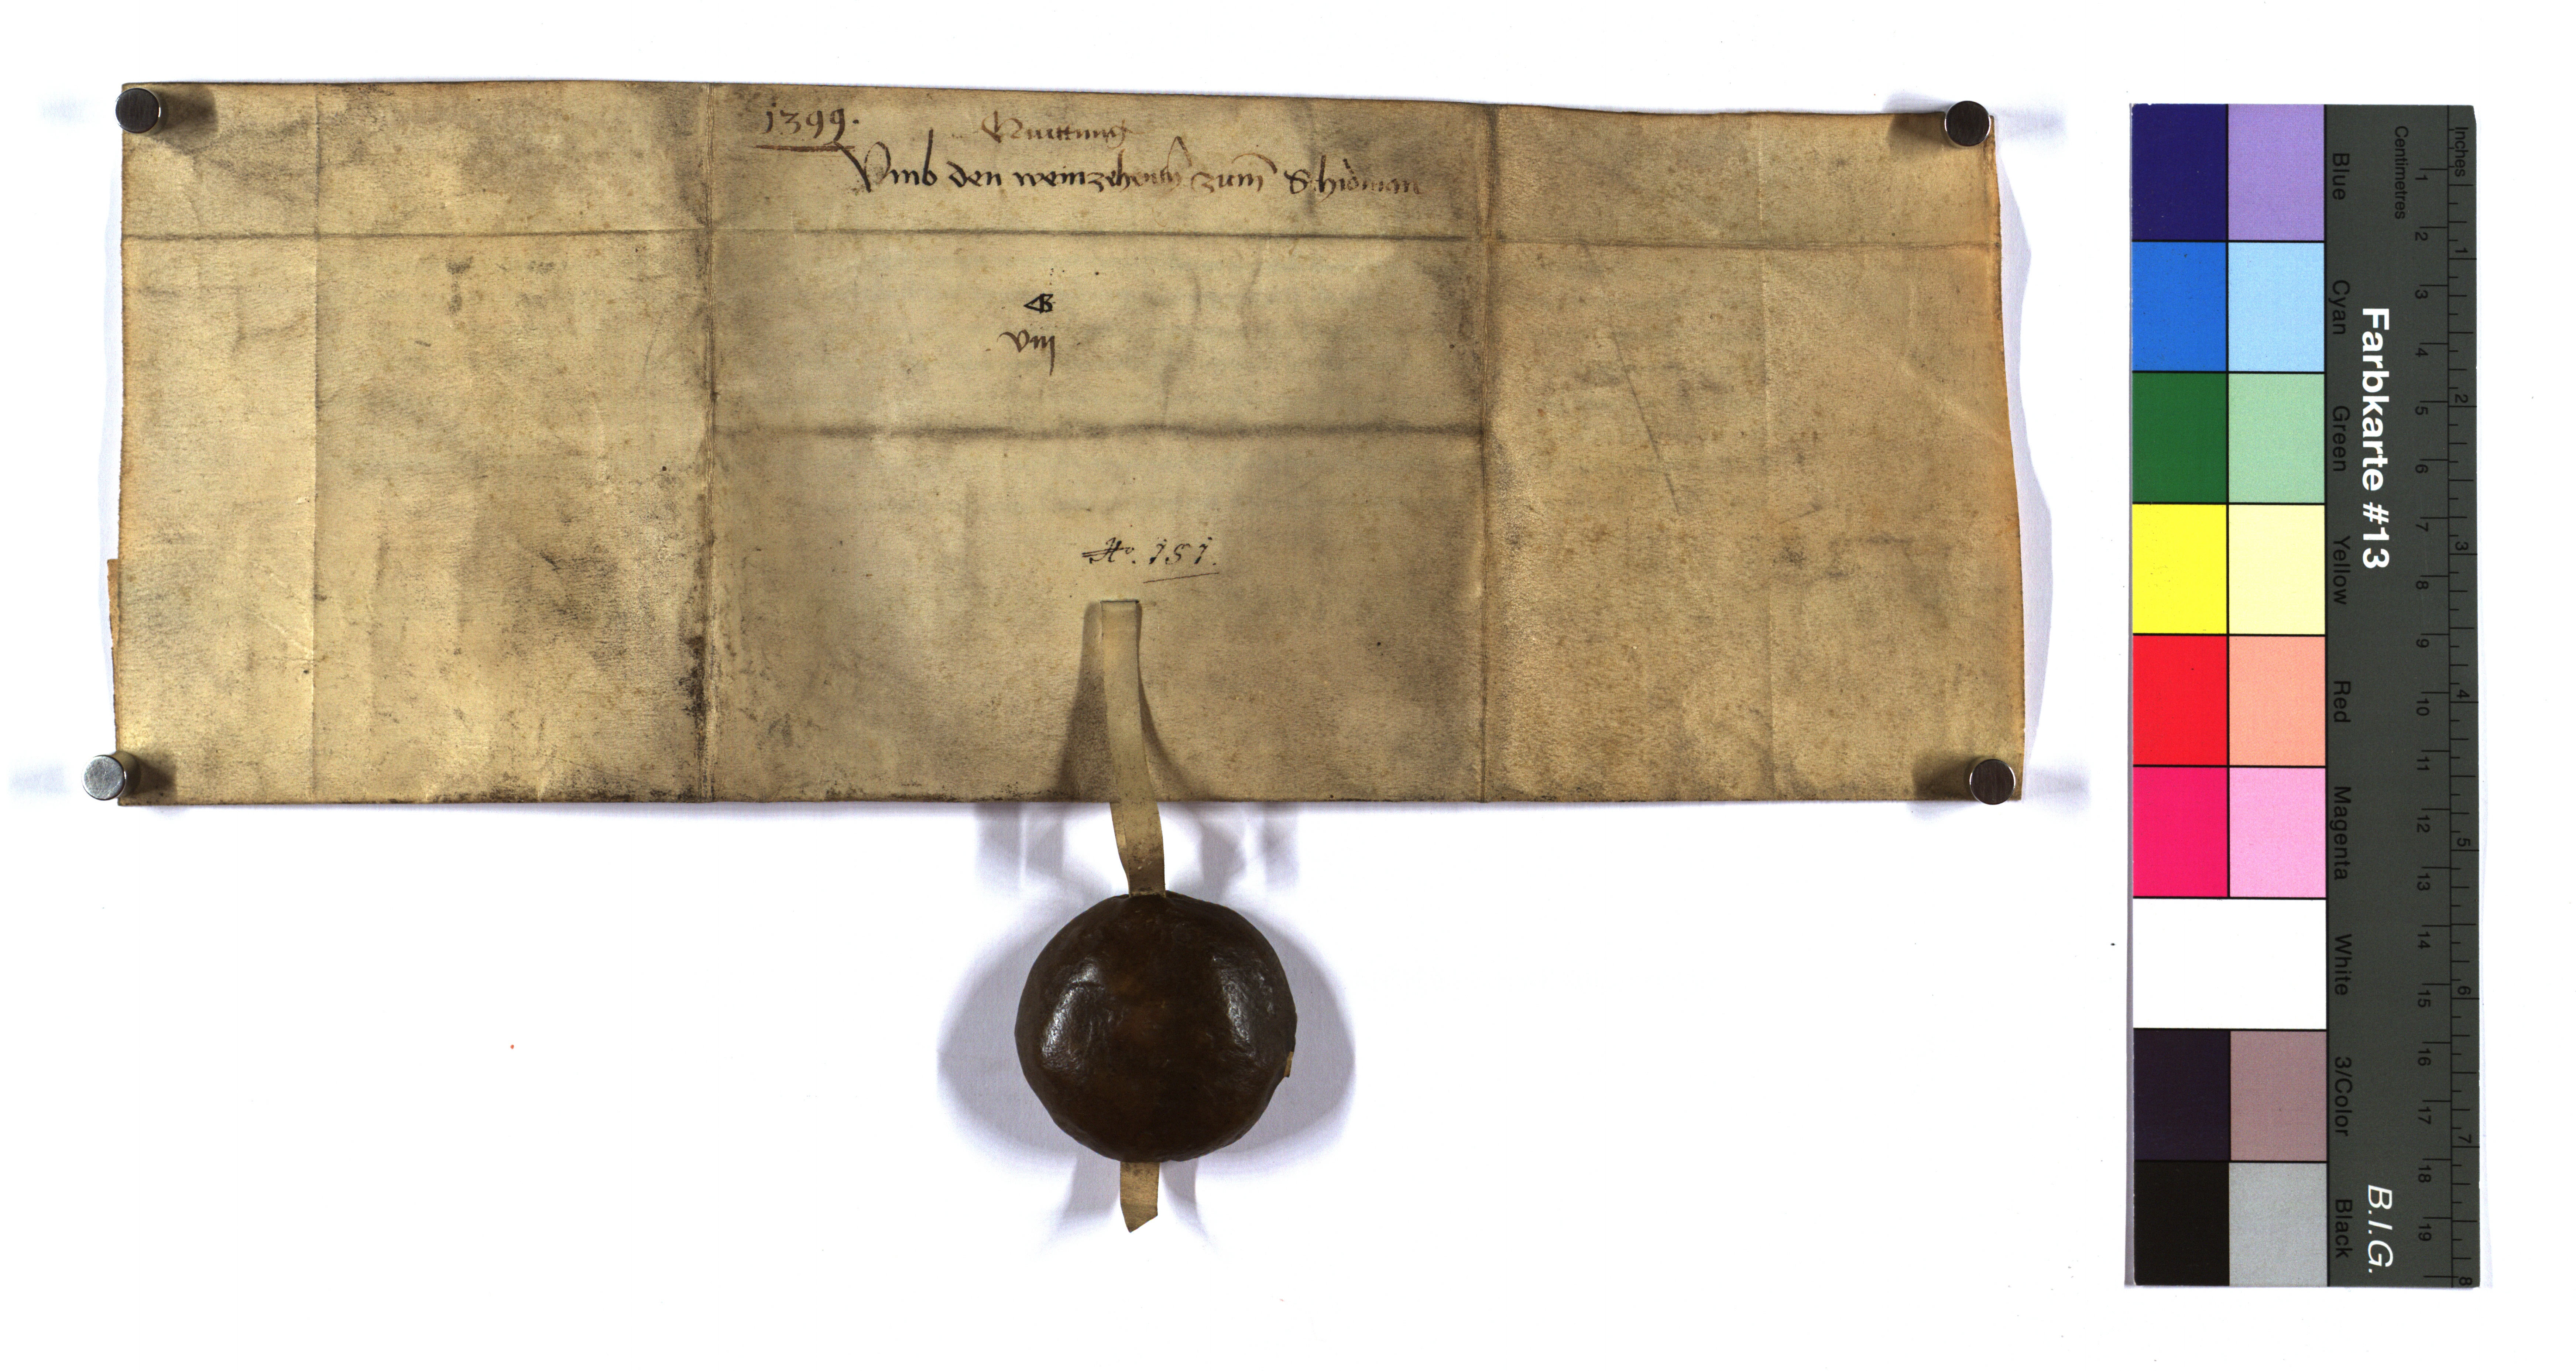 1399.
Quittung
Vmb den weinzehentn zum
B
viij
No. 151.
Inches
Centimetres
1 2 3 4 5 6 7 8 9 10 11 12 13 14 15 16 17 18 19
1 2 3 4 5 6 7 8
Farbkarte #13
B.I.G.
Blue Cyan Green Yellow Red Magenta White 3/Color Black